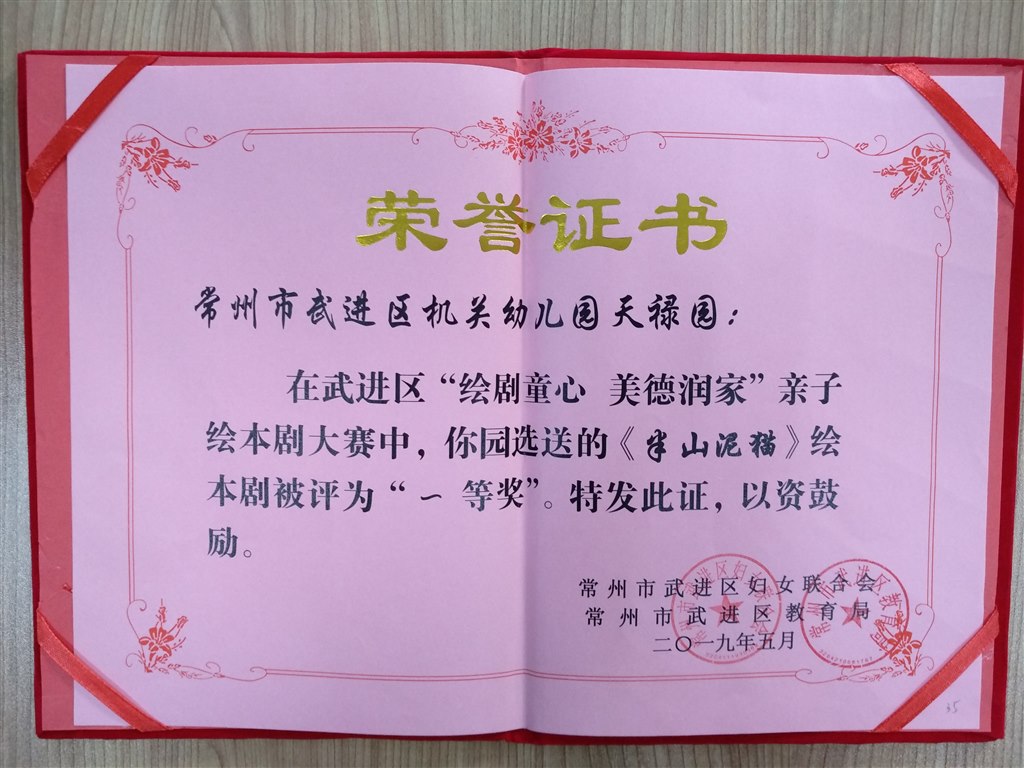 荣誉证书
常州市武进区机关幼儿园天禄园：
在武进区“绘剧童心 美德润家”亲子
绘本剧大赛中，你园选送的《半山泥猫》绘
本剧被评为“一等奖”。特发此证，以资鼓
励。
常州市武进区妇女联合会
常州市武进区教育局
二〇一九年五月